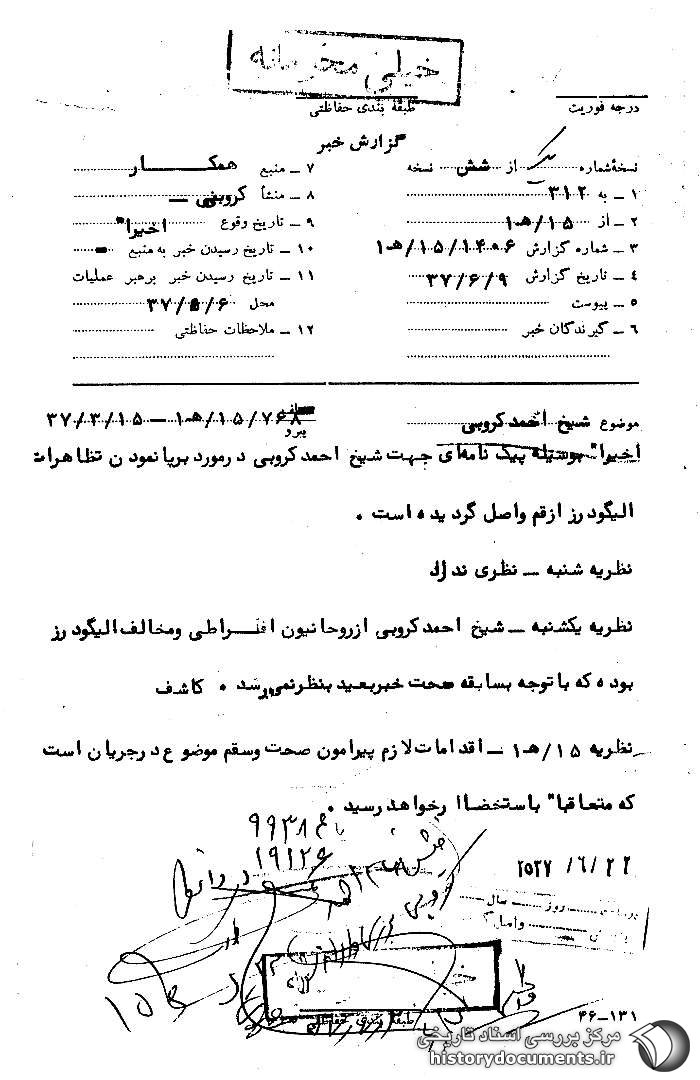 خیلی محرمانه
درجه فوریت
طبقه بندی حفاظتی
گزارش خبر
نسخهٔ شماره یک از شش نسخه
۱ ـ به ۳۱۲
۲ ـ از ۱۵/هـ۱
۳ ـ شماره گزارش ۱۴۰۶/۱۵/هـ۱
۴ ـ تاریخ گزارش ۳۷/۶/۹
۵ ـ پیوست
۶ ـ گیرندگان خبر
۷ ـ منبع همکار
۸ ـ منشأ کروبی ـ
۹ ـ تاریخ وقوع اخیرا"
۱۰ ـ تاریخ رسیدن خبر به منبع ـ
۱۱ ـ تاریخ رسیدن خبر برهبر عملیات
محل ۳۷/۵/۶
۱۲ ـ ملاحظات حفاظتی
موضوع شیخ احمدکروبی
پیرو ۷۶۸/۱۵/هـ۱ ـ ۳۷/۳/۱۵
اخیرا" بوسیله پیک نامه‌ای جهت شیخ احمدکروبی درمورد برپا نمودن تظاهرات
الیگودرز ازقم واصل گردیده است .
نظریه شنبه ـ نظری ندارد
نظریه یکشنبه ـ شیخ احمدکروبی ازروحانیون افـراطی ومخالف الیگودرز
بوده که با توجه بسابقه صحت خبربعید بنظرنمی‌رسد . کاشف
نظریه ۱۵/هـ۱ ـ اقدامات لازم پیرامون صحت وسقم موضوع درجریان است
که متعاقبا" باستخضار خواهد رسید .
۹۹۳۸
۱۹۱۲۶
۲۵۳۷/۶/۲۲
روز سال
طبقه بندی حفاظتی
۴۶-۱۳۱
مرکز بررسی اسناد تاریخی
historydocuments.ir